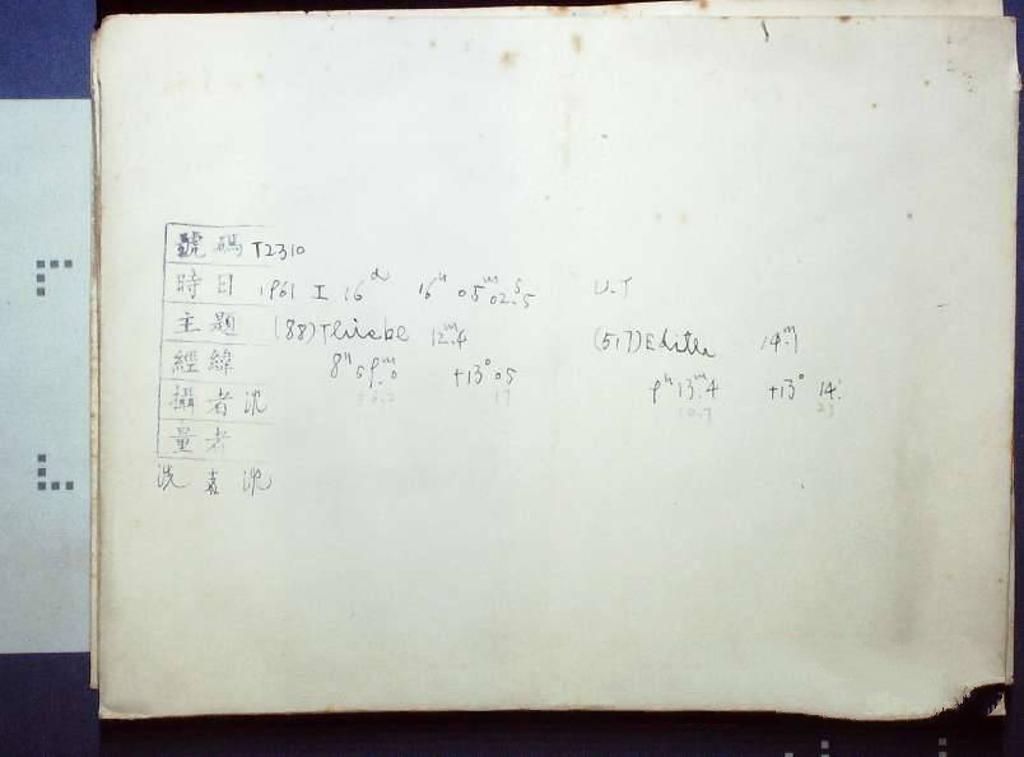 號碼 T2310
時日 1961 I 16ᵈ 16ʰ 05ᵐ 02.ˢ5 U.T
主題 (88) Thisbe 12.ᵐ4 (517) Edith 14.ᵐ1
經緯 8ʰ 59.ᵐ0 +13°05 9ʰ 13.ᵐ4 +13° 14'
17 10.7 23
攝者 沈
量者
洗 袁 沈